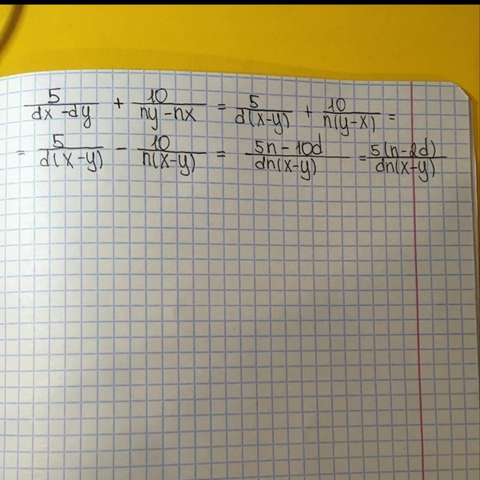 5/(dx-dy) + 10/(ny-nx) = 5/(d(x-y)) + 10/(n(y-x)) =
= 5/(d(x-y)) - 10/(n(x-y)) = (5n-10d)/(dn(x-y)) = 5(n-2d)/(dn(x-y))